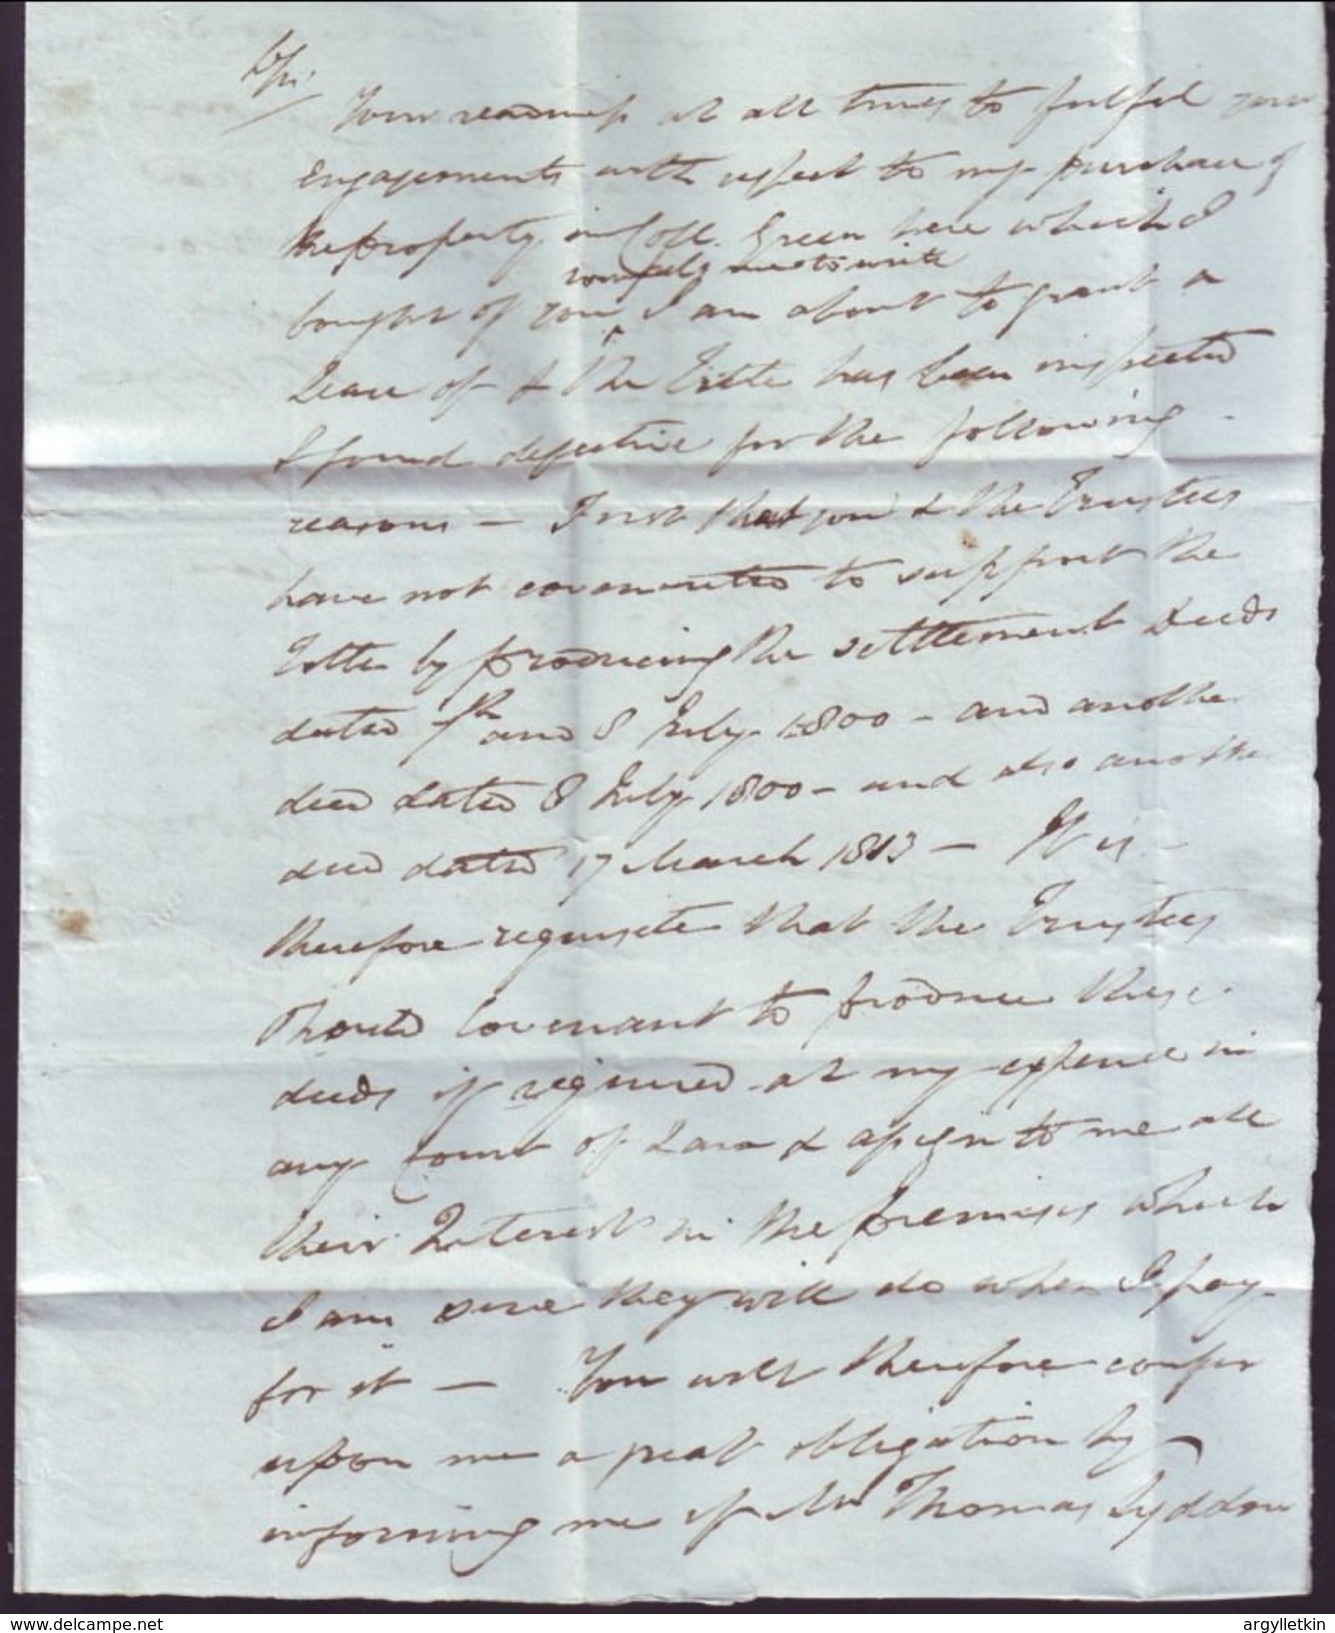 Sir
Your readiness at all times to fulfil your
engagements with respect to my purchase of
the property in Coll. Green here which I
compels me to write
bought of you I am about to grant a
Lease of & the Title has been inspected
& found defective for the following
reasons — First that you & the Trustees
have not covenanted to support the
Title by producing the settlement deeds
dated 7th and 8 July 1800 – and another
deed dated 8 July 1800 – and also another
deed dated 17 March 1813 — It is
therefore requisite that the Trustees
should Covenant to produce these
deeds if required at my expence in
any Court of Law & assign to me all
their Interest in the premises which
I am sure they will do when I pay
for it — You will therefore confer
upon me a great obligation by
informing me if Mr Thomas Lyddon
www.delcampe.net
argylletkin